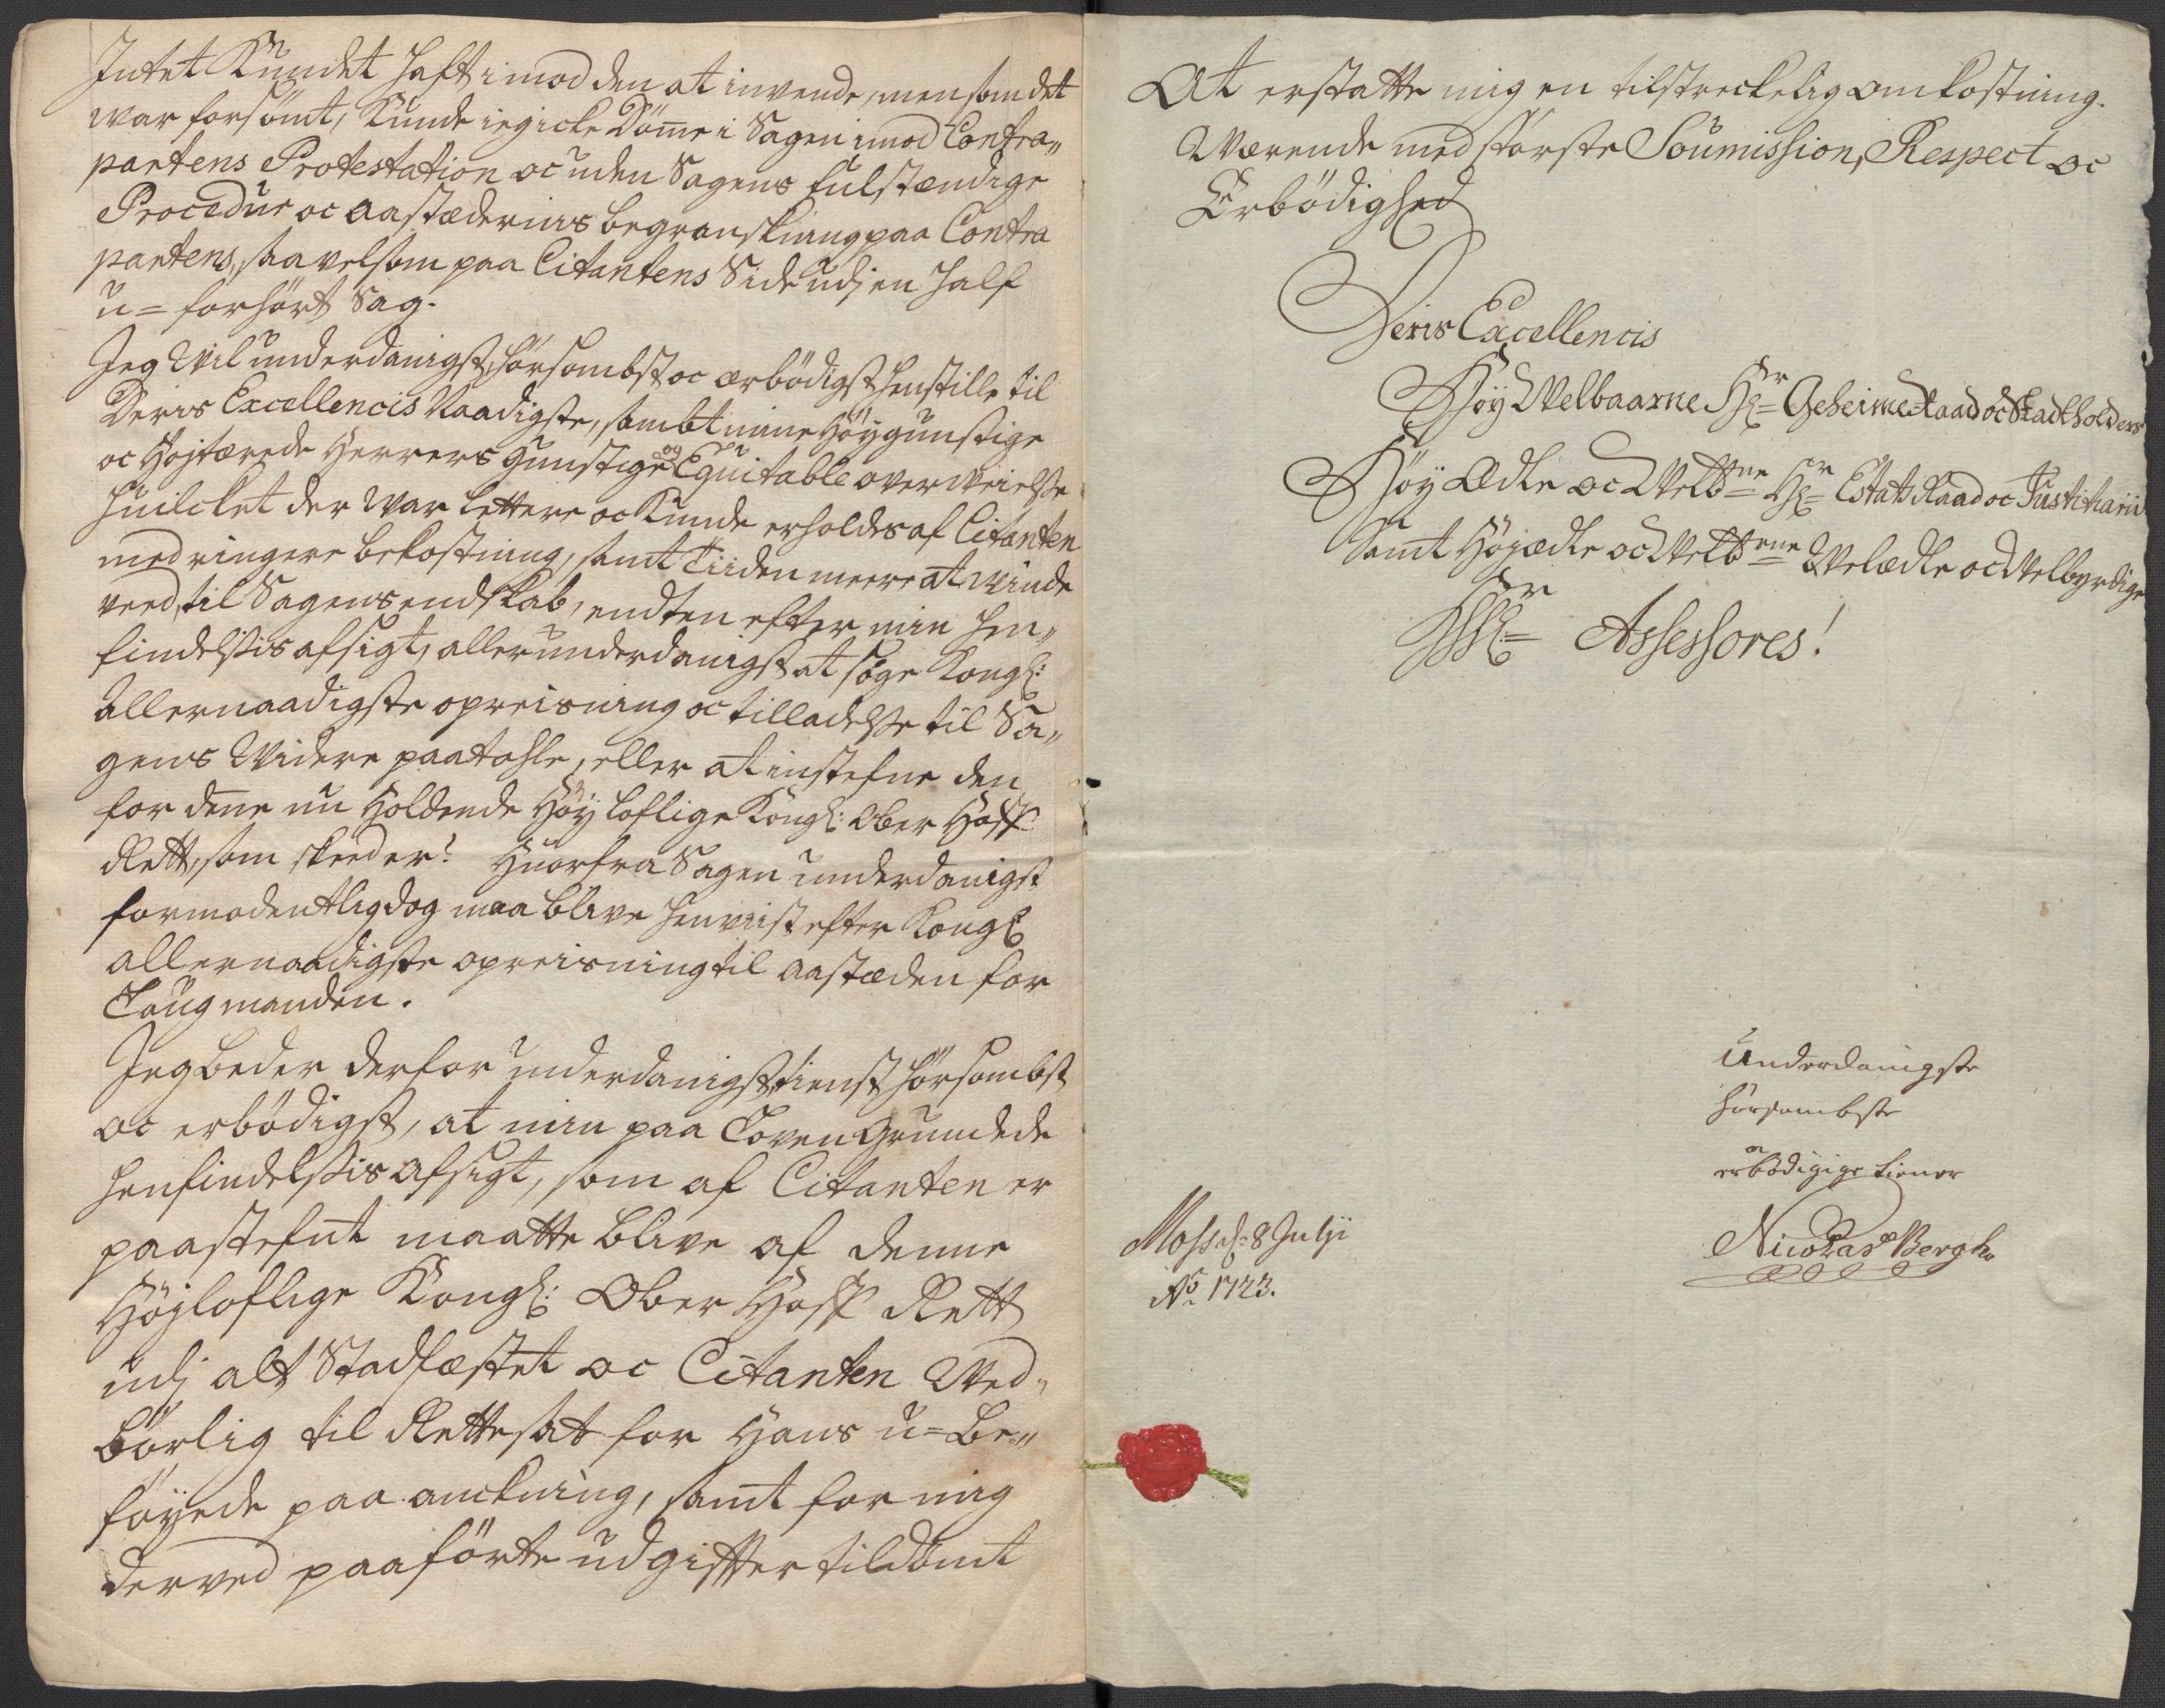 Intet Kundet haft imod den at invende, men som det
war forsömt, Kunde ieg icke Döme i Sagen imod Contra„
partens Protestation oc uden Sagens fulstændige
Procedur oc aastædernis begranskning paa Contra
partens, saavelsom paa Citantens Side udj en half
u=forhört Sag.
Jeg Vil underdanigst, hörsombst oc ærbödigst henstille til
Deris Excellencis Naadigste, sambt mine Höygunstige
oc Højtærede Herrers gunstige og Equitable overveielse
huilcket der War lettere oc Kunde erholdes af Citanten
med ringere bekostning, samt Tiiden meere at vinde
ved, til Sagens endskab, endten efter min hen„
findelsis afsigt, allerunderdanigst at söge Kongl:
Allernaadigste opreisning oc tilladelse til Sa„
gens Videre paatahle, eller at instefne den
for denne nu Holdende Höyloflige Kongl: Ober Hoff
Rett, som skeed er? Huorfra Sagen underdanigst
formodentlig dog maa blive henviist efter Kongl
allernaadigste opreisning til aastæden for
Laugmanden.
Jeg beder derfor underdanigst, tienst hörsombst
oc erbödigst, at min paa Loven Grundede
henfindelsis afsigt, som af Citanten er
paastefnt maatte blive af denne
Höyloflige Kongl: Ober Hoff Rett
udj alt Stadfæstet oc Citanten Wed„
börlig til Rettesat for Hans u=be„
föyede paa anckning, samt for mig
derved paaförte udgiffter tildömt
At erstatte mig en tilstreckelig omkostning.
Værende med störste Soumission, Respect oc
Erbödighed
Deris Excellencis
Höy Velbaarne Hr Geheime Raad oc Stadtholders
Höy Ædle oc Velbne Hr Estats Raad oc Justitiarii
Samt Höjædle oc Velbrne Velædle oc Velbyrdige
Hr Assessores!
Underdanigste
hörsombste
oc
erbödigige tiener
Nicolas Bergh
Moss d: 8 Julij
Ao 1723.